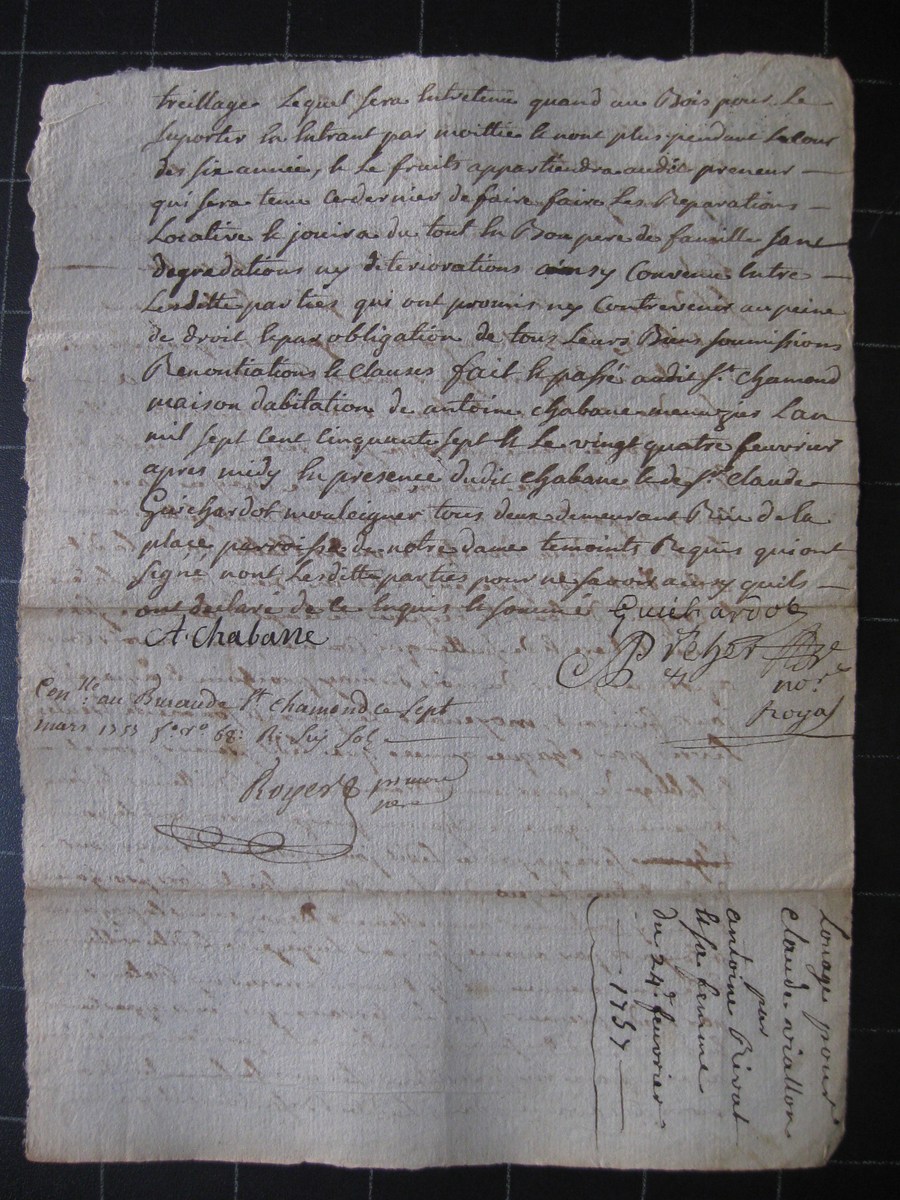 treillage Lequel sera Entretenu quand au Bois pour Le
suporter En Entrant par moittié & non plus pendant Le Cour
des six année, & Le fruits appartiendra audit preneur
qui sera tenu Ce dernier de faire faire Les Reparations
Locative & jouira du tout En Bon pere de famille sans
degredations ny deteriorations ainsy Convenu Entre
Lesditte parties qui ont promis ny Contrevenir au peine
de droit & par obligation de tous Leurs Biens soumissions
Renontiations & Clauses fait & passé audit St. Chamond
maison dabitation de antoine Chabane menuzies Lan
mil sept Cent Cinquante sept & Le vingt quatre feuvrier
apres midy En presence dudit Chabane & de Sr. Claude
Guichardot mouleigner tous deux demeurant Rüe de la
place parroisse de notre dame temoints Requis qui ont
signé nont Lesditte parties pour ne savoir ainsy quils
ont declaré de Ce Enquis & sommé Guichardot
A. Chabane
no.re
Royal
Con.llé au Bureau de St Chamond Ce sept
mars 1757 fo ro 68: R: Six Sol
Royer
Louage pour
Claude viallon
par
antoine Rivat
& sa femme
du 24e. feuvrier
1757